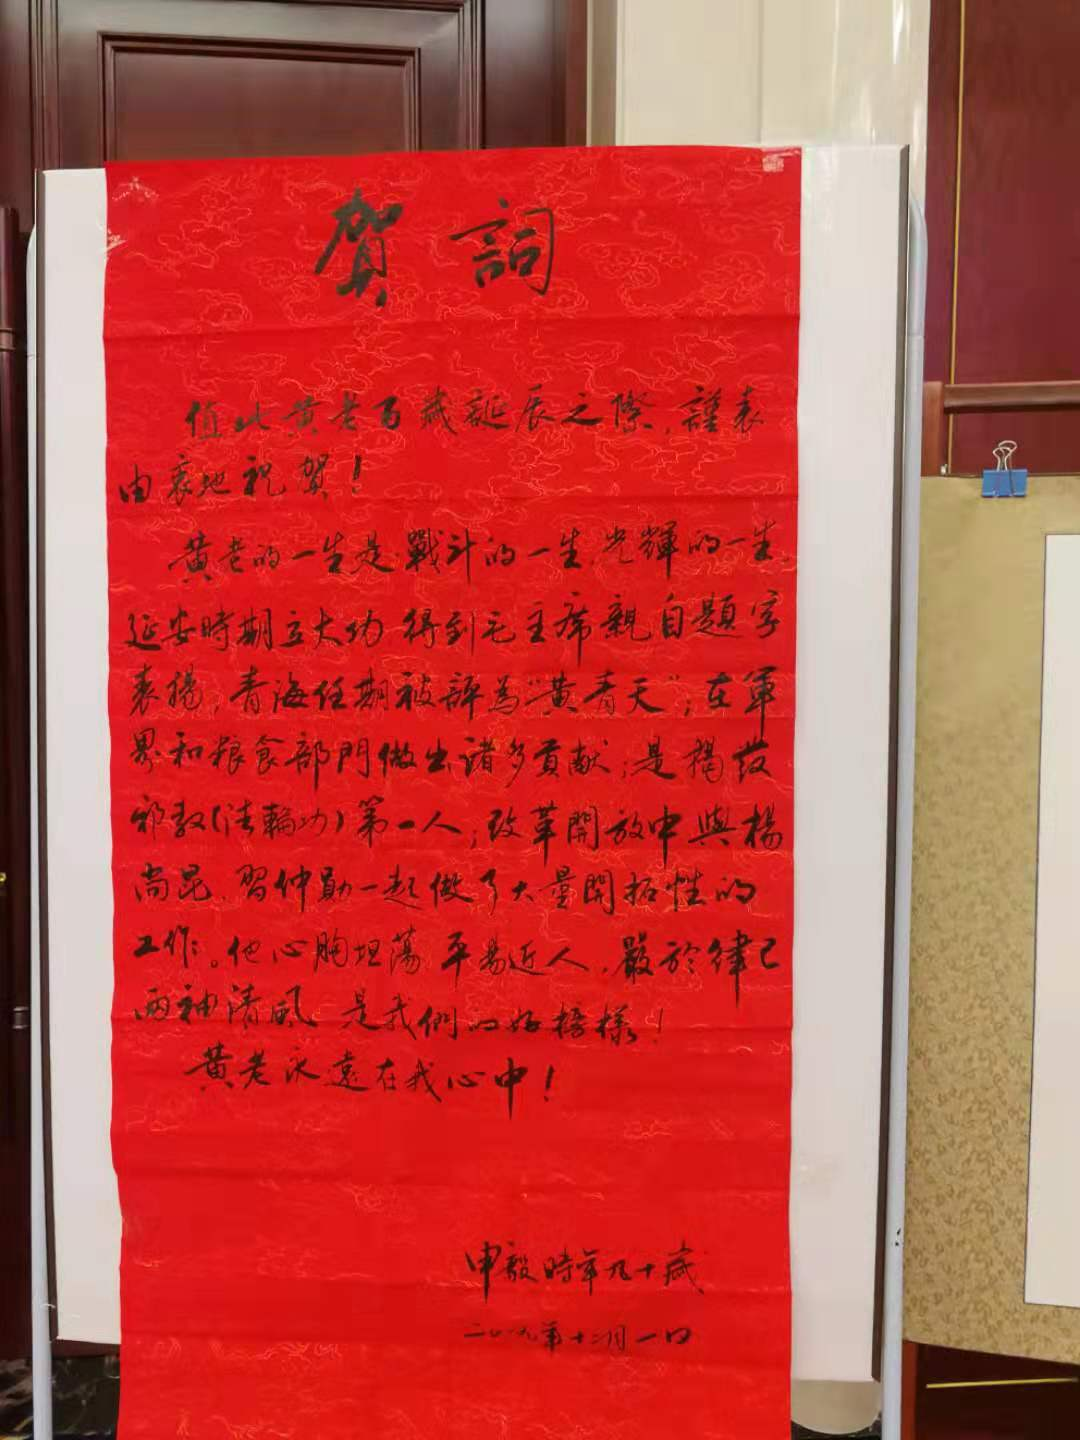 賀詞
值此黄老百歲誕辰之際，謹表
由衷地祝贺！
黄老的一生是戰斗的一生，光輝的一生。
延安時期立大功 得到毛主席親自題字
表揚；青海任期被評為“黄青天”；在軍
界和粮食部門做出諸多貢献；是揭发
邪教(法輪功)第一人；改革開放中與楊
尚昆、習仲勛一起做了大量開拓性的
工作。他心胸坦蕩 平易近人，嚴於律己
兩袖清風 是我們的好榜樣！
黄老永遠在我心中！
申毅時年九十歲
二〇一九年十二月一日